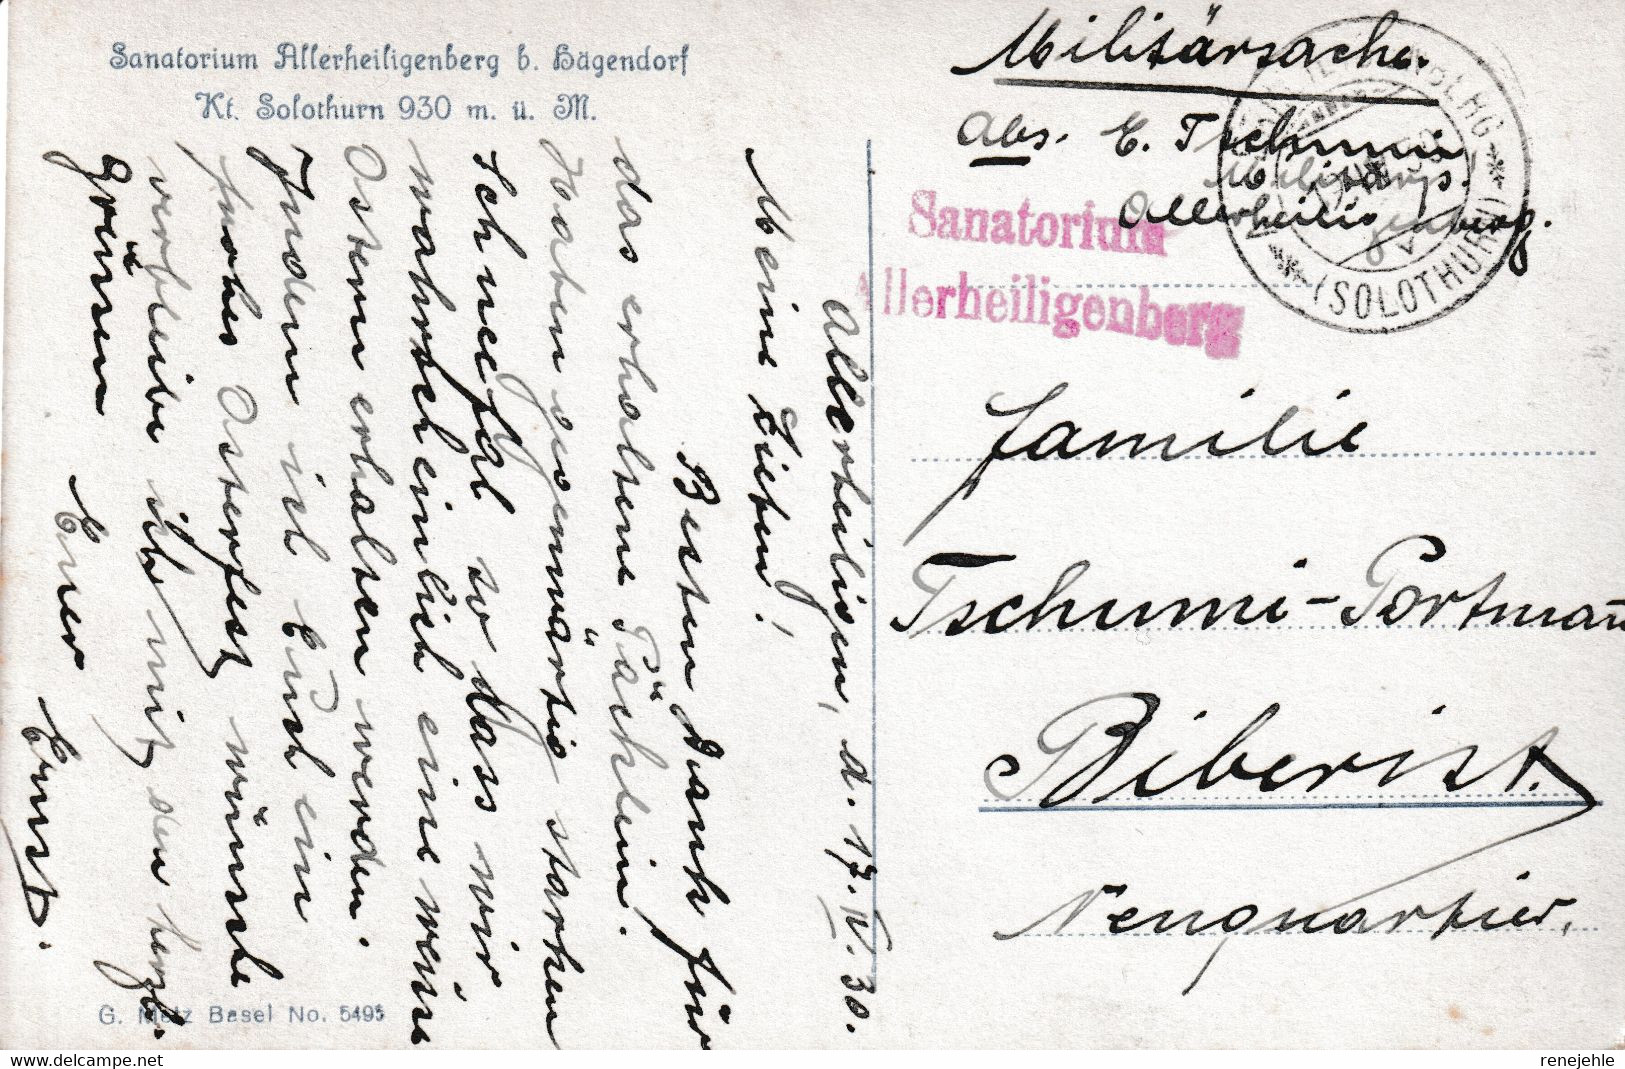 Sanatorium Allerheiligenberg b. Hägendorf
Kt. Solothurn 930 m. ü. M.
Allerheiligen, d. 17. IV. 30.
Meine Lieben!
Besten Dank für
das erhaltene Päcklein.
Haben gegenwärtig starken
Schneefall so dass wir
wahrscheinlich eine weisse
Ostern erhalten werden.
Indem ich Euch ein
frohes Osterfest wünsche
verbleibe ich mit den herzl.
Grüssen
Euer Ernst.
G. Metz Basel No. 5495
Militärsache.
Abs. E. Tschumi
Militärs.
Allerheiligenberg.
Sanatorium
Allerheiligenberg
(SOLOTHURN)
Familie
Tschumi-Portmann
Biberist.
Neuquartier.
delcampe.net
renejehle